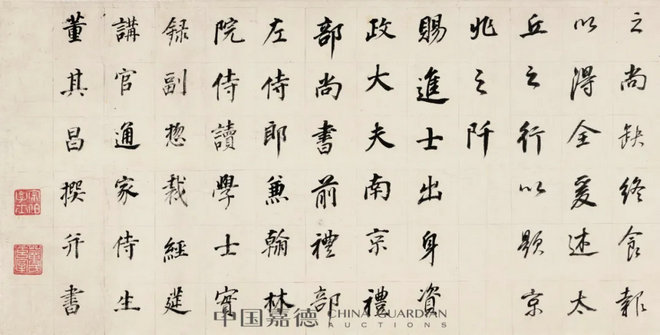 之尚缺終食報
以得全爰述太
丘之行以題京
兆之阡
賜進士出身資
政大夫南京禮
部尚書前禮部
左侍郎兼翰林
院侍讀學士實
録副總裁經筵
講官通家侍生
董其昌撰并書
中国嘉德 CHINA GUARDIAN AUCTIONS